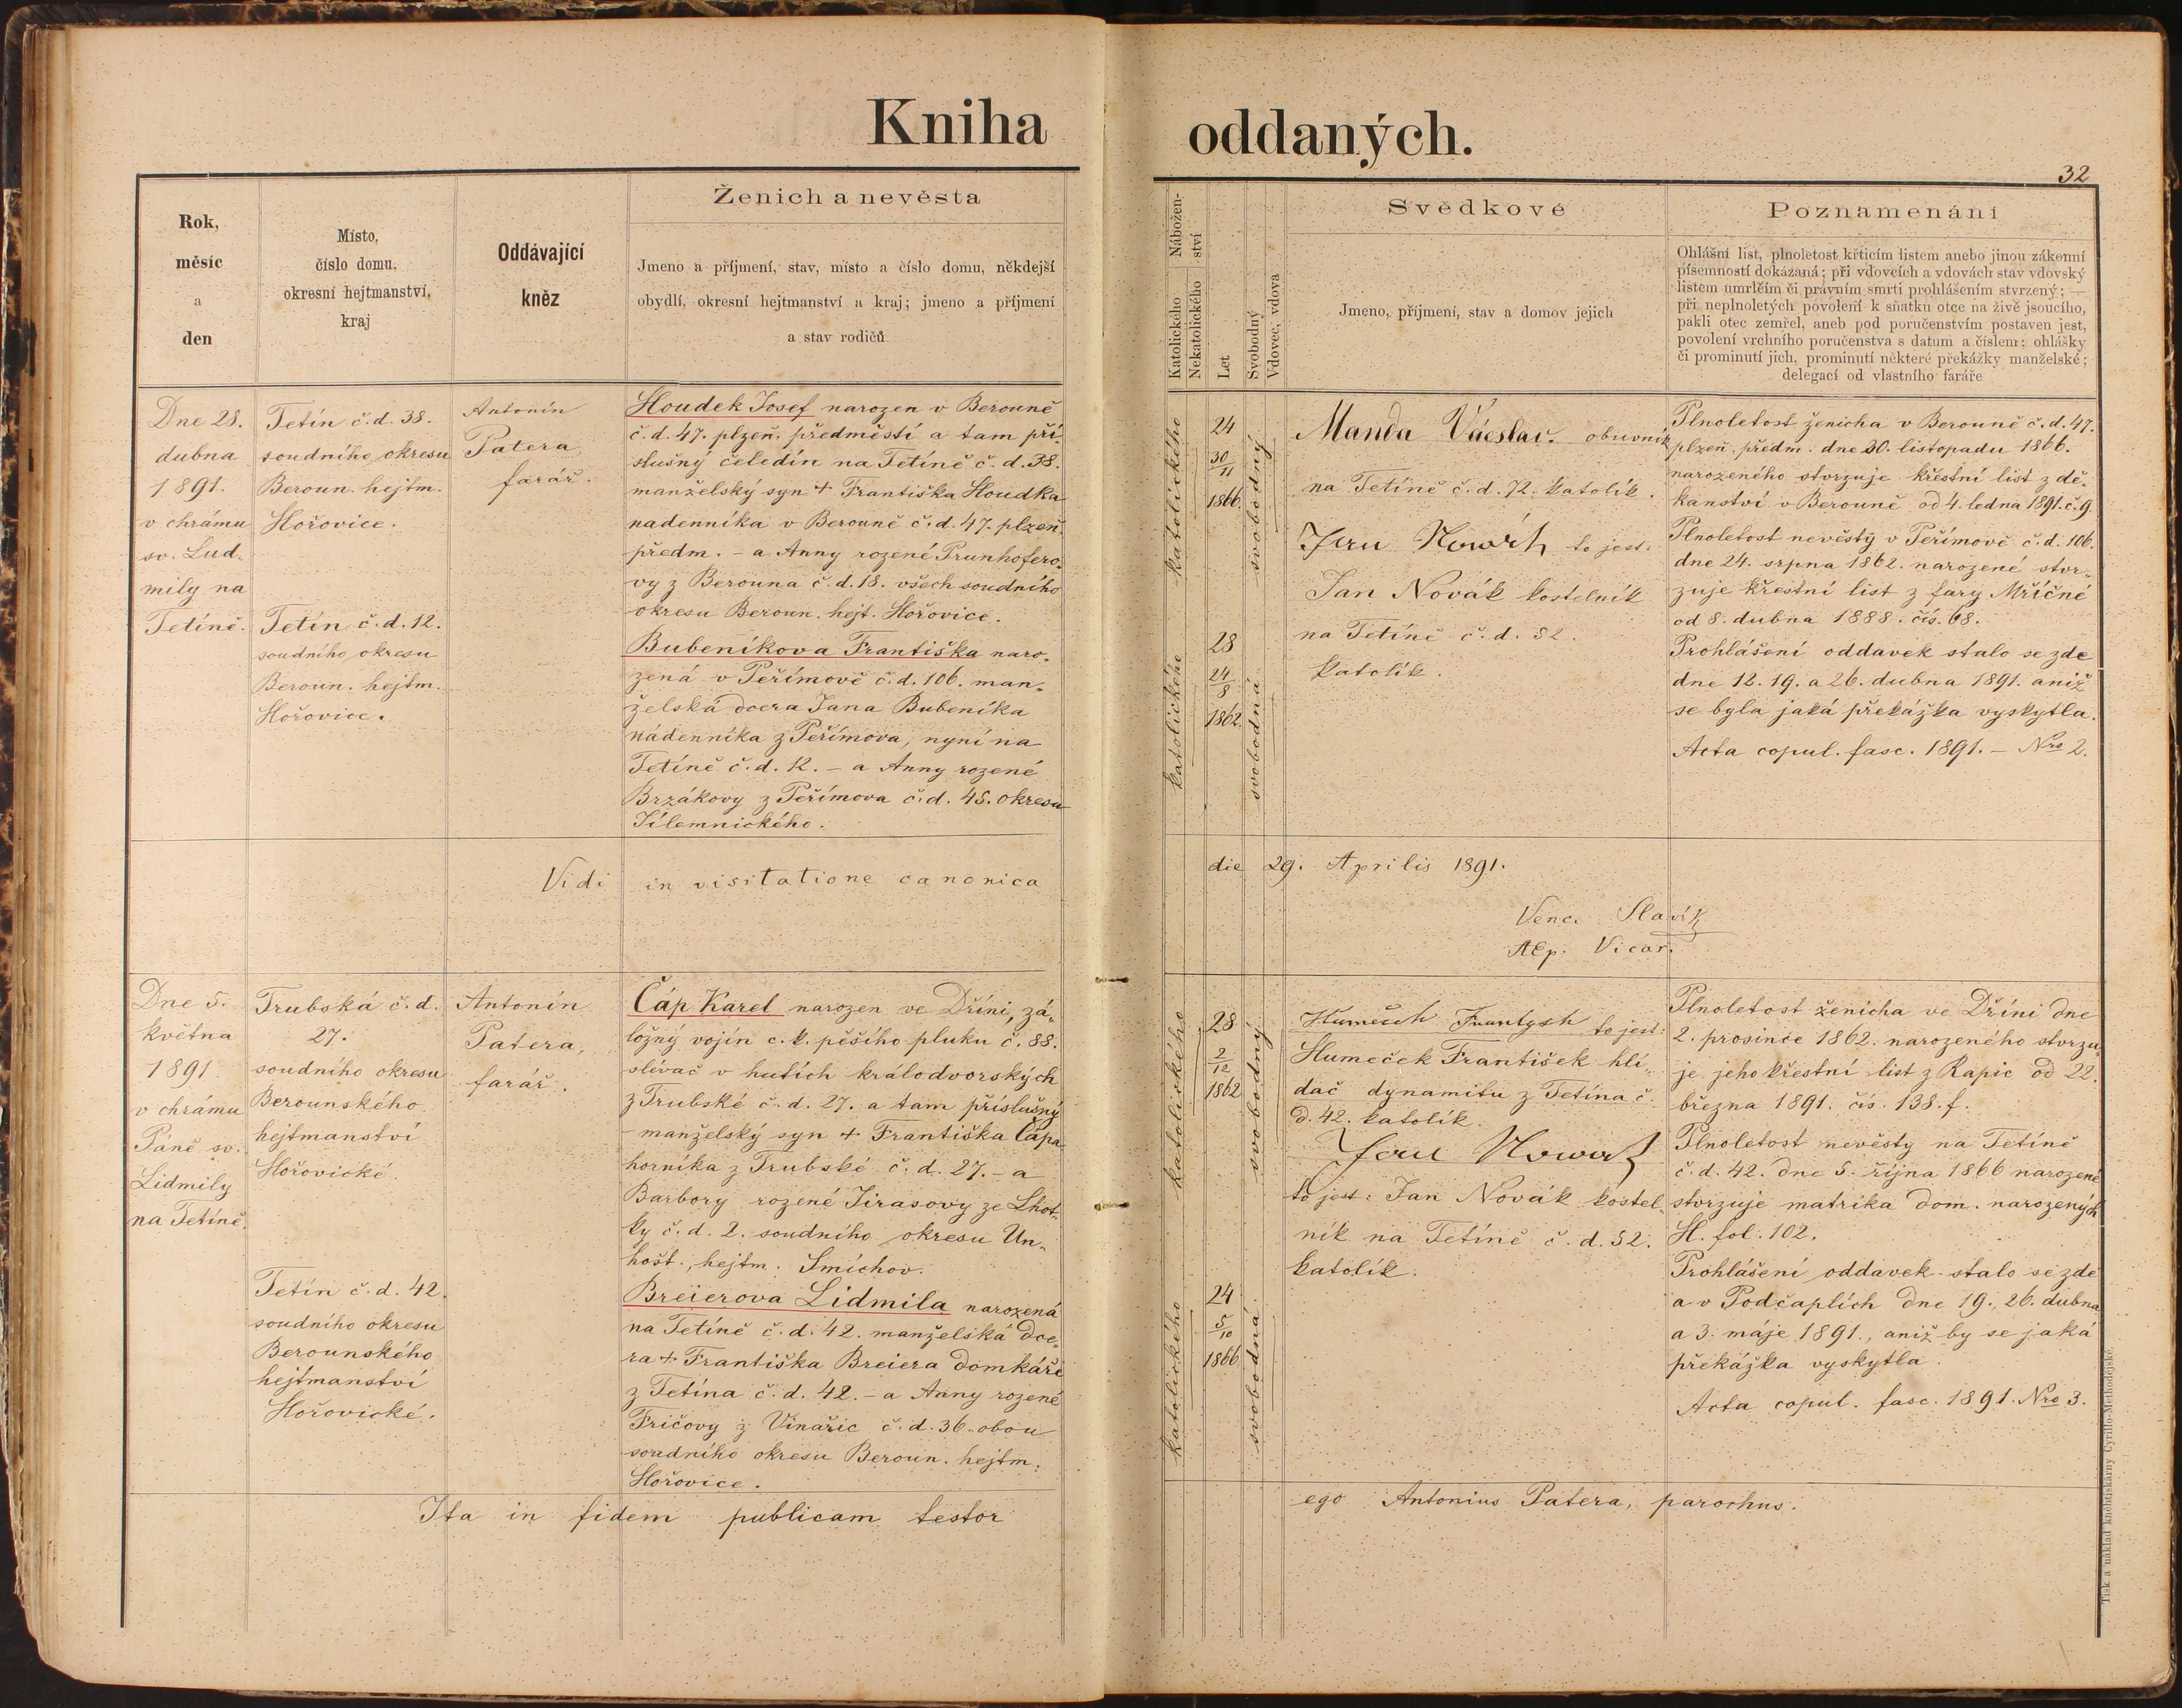 Kniha oddaných.
32
Rok,
měsíc
a
den
Místo,
číslo domu,
okresní hejtmanství,
kraj
Oddávající
kněz
Ženich a nevěsta
Jmeno a příjmení, stav, místo a číslo domu, někdejší
obydlí, okresní hejtmanství a kraj; jmeno a příjmení
a stav rodičů
Nábožen-
ství
Katolického
Nekatolického
Let
Svobodný
Vdovec, vdova
Svědkové
Jmeno, příjmení, stav a domov jejich
Poznamenání
Ohlášní list, plnoletost křticím listem anebo jinou zákonní
písemností dokázaná; při vdovcích a vdovách stav vdovský
listem umrlčím či právním smrti prohlášením stvrzený; —
při neplnoletých povolení k sňatku otce na živě jsoucího,
pakli otec zemřel, aneb pod poručenstvím postaven jest,
povolení vrchního poručenstva s datum a číslem; ohlášky
či prominutí jich, prominutí některé překážky manželské;
delegací od vlastního faráře
Dne 28.
dubna
1891.
v chrámu
sv. Lud-
mily na
Tetíně.
Tetín č.d. 38.
soudního okresu
Beroun. hejtm.
Hořovice.
Tetín č.d. 12.
soudního okresu
Beroun. hejtm.
Hořovice.
Antonín
Patera,
farář.
Houdek Josef narozen v Berouně
č.d. 47. plzeň. předměstí a tam pří-
slušný čeledín na Tetíně č.d. 38.
manželský syn + Františka Houdka
nadenníka v Berouně č.d. 47. plzeň.
předm. - a Anny rozené Prunhofero-
vy z Berouna č.d. 18. všech soudního
okresu Beroun. hejt. Hořovice.
Bubeníkova Františka naro-
zená v Peřímově č.d. 106. man-
želská dcera Jana Bubeníka
nádenníka z Peřímova, nyní na
Tetíně č.d. 12. - a Anny rozené
Brzákovy z Peřímova č.d. 48. okresu
Jilemnického.
katolického
24
30/11
1866.
svobodný
katolického
28
24/8
1862.
svobodná
Manda Vácslav. obuvník
na Tetíně č.d. 72. katolík.
Jan Nowák to jest:
Jan Novák kostelník
na Tetíně č.d. 52.
katolík.
Plnoletost ženicha v Berouně č.d. 47.
plzeň. předm. dne 30. listopadu 1866.
narozeného stvrzuje křestní list z dě-
kanství v Berouně od 4. ledna 1891. č. 9.
Plnoletost nevěsty v Peřímově č.d. 106.
dne 24. srpna 1862. narozené stvr-
zuje křestní list z fary Mříčné
od 8. dubna 1888. čís. 68.
Prohlášení oddavek stalo se zde
dne 12. 19. a 26. dubna 1891. aniž
se byla jaká překážka vyskytla.
Acta copul. fasc. 1891. - Nro 2.
Vidi in visitatione canonica die 29. Aprilis 1891.
Venc. Slavík
Aep. Vicar.
Dne 5.
května
1891
v chrámu
Páně sv.
Lidmily
na Tetíně.
Trubská č.d.
27.
soudního okresu
Berounského
hejtmanství
Hořovické.
Tetín č.d. 42.
soudního okresu
Berounského
hejtmanství
Hořovické.
Antonín
Patera,
farář.
Čáp Karel narozen ve Dříni, zá-
ložný vojín c.k. pěšího pluku č. 88.
slévač v hutích králodvorských
z Trubské č.d. 27. a tam příslušný
- manželský syn + Františka Čápa
horníka z Trubské č.d. 27. - a
Barbory rozené Jirasovy ze Lhot-
ky č.d. 2. soudního okresu Un-
hošt., hejtm. Smíchov.
Breierova Lidmila narozená
na Tetíně č.d. 42. manželská dce-
ra + Františka Breiera domkáře
z Tetína č.d. 42. - a Anny rozené
Fričovy z Vinařic č.d. 36. obou
soudního okresu Beroun. hejtm.
Hořovice.
katolického
28
2/12
1862
svobodný
katolického
24
5/10
1866
svobodná
to jest:
Humeček František hlí-
dač dynamitu z Tetína č.
d. 42. katolík.
Jan Nowak
to jest: Jan Novák kostel-
ník na Tetíně č.d. 52.
katolík.
Plnoletost ženicha ve Dříni dne
2. prosince 1862. narozeného stvrzu-
je jeho křestní list z Rapic od 22.
března 1891. čís. 138. f.
Plnoletost nevěsty na Tetíně
č.d. 42. dne 5. října 1866 narozené
stvrzuje matrika dom. narozených
H. fol. 102.
Prohlášení oddavek stalo se zde
a v Podčaplích dne 19., 26. dubna
a 3. máje 1891., aniž by se jaká
překážka vyskytla.
Acta copul. fasc. 1891. Nro 3.
Ita in fidem publicam testor ego Antonius Patera, parochus.
Tisk a náklad kněhtiskárny Cyrillo-Methodějské.